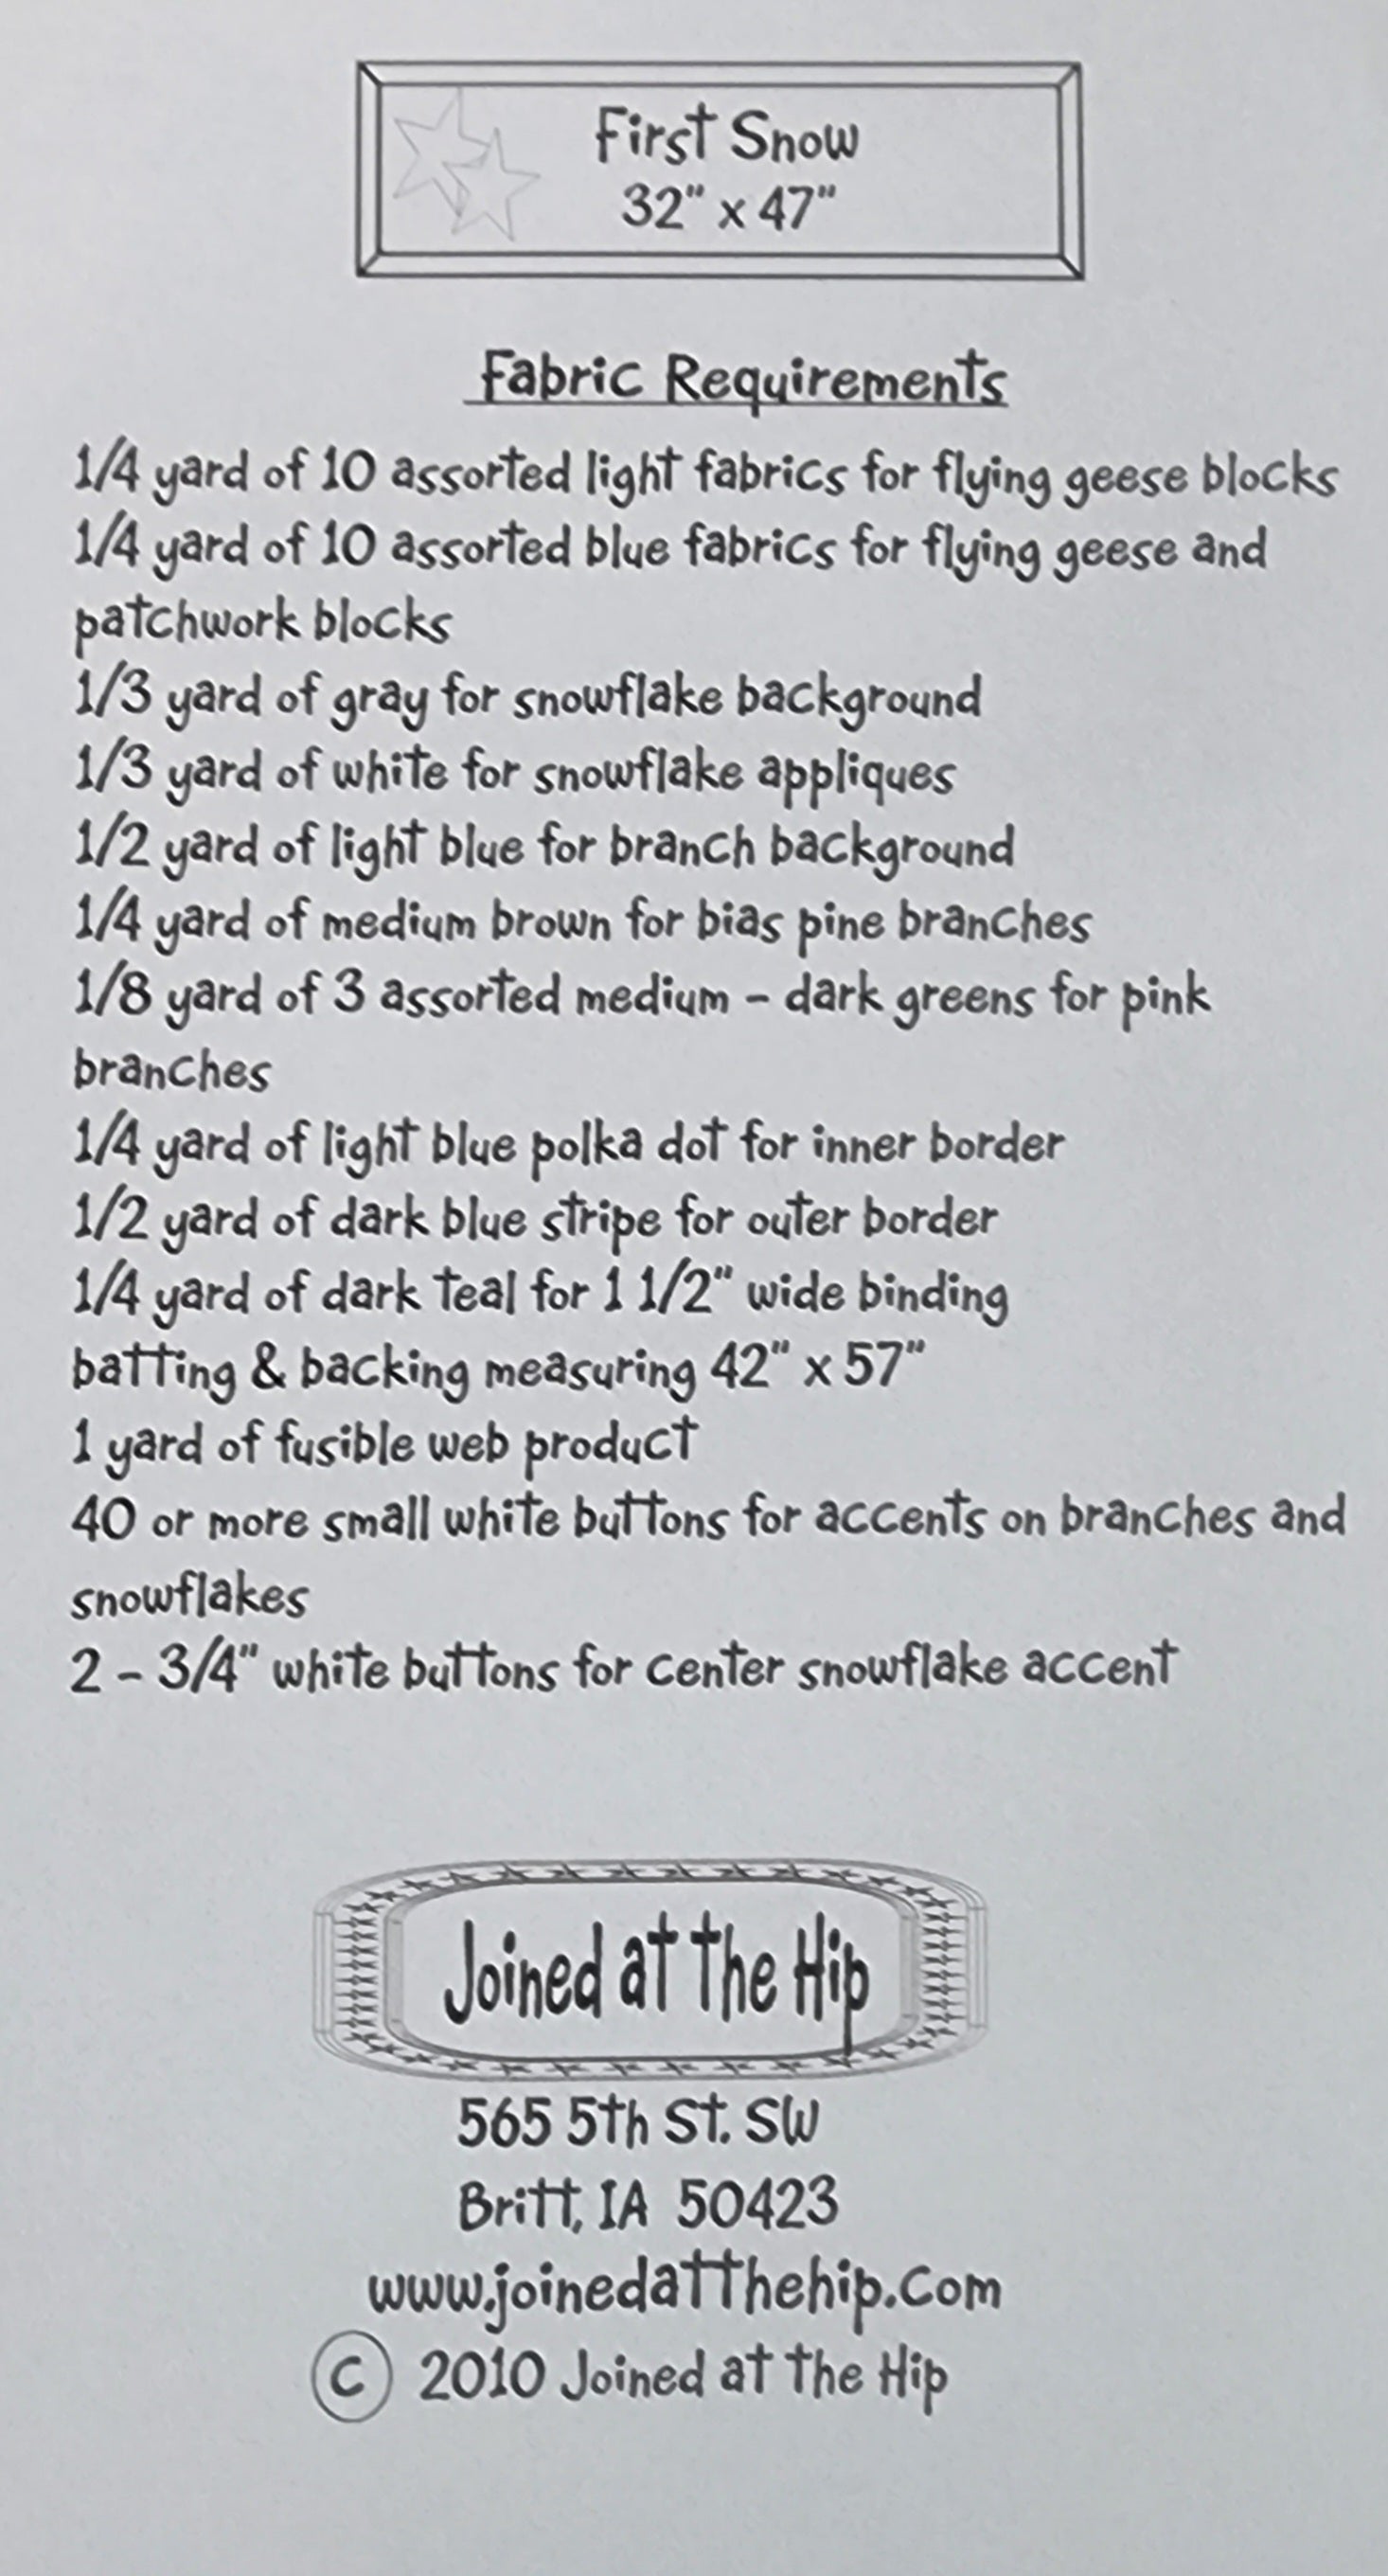 First Snow
32" x 47"
Fabric Requirements
1/4 yard of 10 assorted light fabrics for flying geese blocks
1/4 yard of 10 assorted blue fabrics for flying geese and
patchwork blocks
1/3 yard of gray for snowflake background
1/3 yard of white for snowflake appliques
1/2 yard of light blue for branch background
1/4 yard of medium brown for bias pine branches
1/8 yard of 3 assorted medium - dark greens for pink
branches
1/4 yard of light blue polka dot for inner border
1/2 yard of dark blue stripe for outer border
1/4 yard of dark teal for 1 1/2" wide binding
batting & backing measuring 42" x 57"
1 yard of fusible web product
40 or more small white buttons for accents on branches and
snowflakes
2 - 3/4" white buttons for center snowflake accent
Joined at the Hip
565 5th St. SW
Britt, IA 50423
www.joinedatthehip.com
© 2010 Joined at the Hip